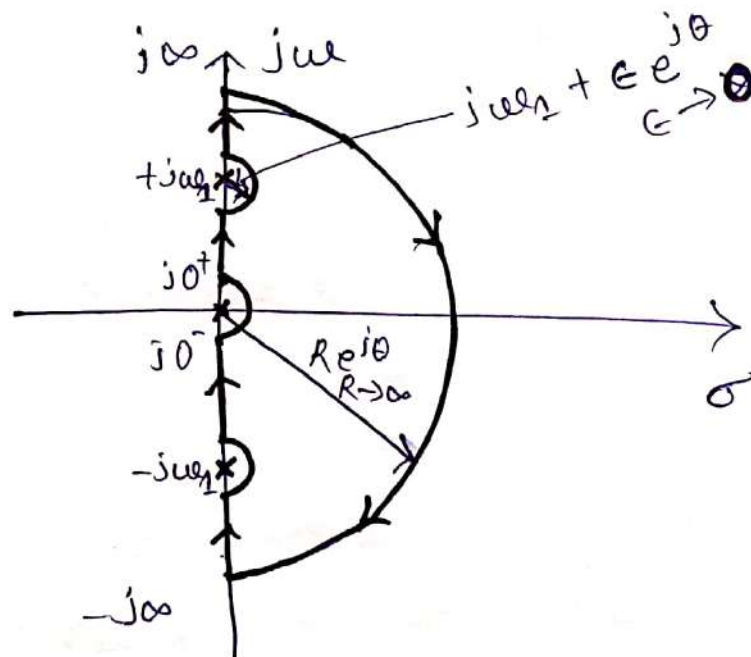 j∞ jω
jω₁ + ϵ e^{jθ}
ϵ → 0
+jω₁
j0⁺
j0⁻
R e^{jθ}
R→∞
σ
-jω₁
-j∞